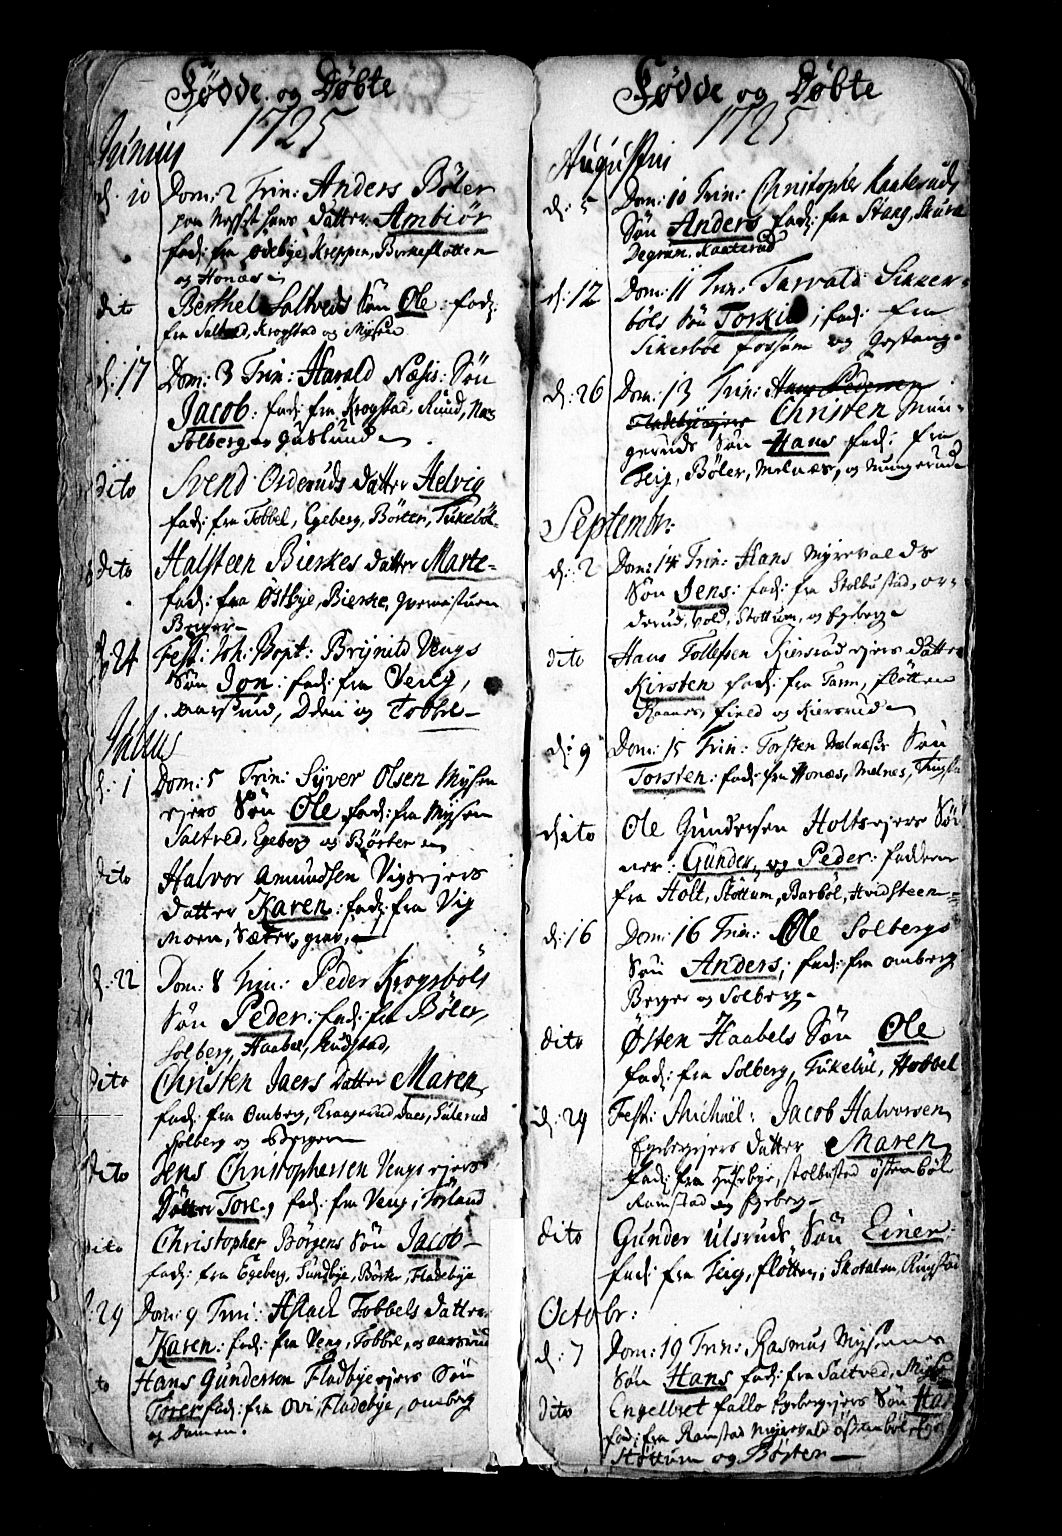 Fødde og Døbte
1725
Junius
d. 10 Dom: 2 Trin: Anders Böler
paa hans datter Ambiör
fad: fra Ödebye, Kreppen, Birkefløtten
og Honæs
dito Berthel Saltveds Søn Ole: fad:
fra Saltved, Krogstad og Mysen
d: 17 Dom: 3 Trin: Harald Næsis: Søn
Jacob: fad: fra Krogstad, Ruud, Næs
Solberg og Guslund
dito Svend Orderuds datter Helvig
fad: fra Tobbel, Egeberg, Börter, Tukebøl
dito Halsteen Bierkes datter Marte
fad: fra Østbye, Bierke,
Berger
d. 24 Fest: Joh: Bapt: Brijnild Vengs
Søn Jon: fad: fra Veng,
Aarsrud, og Tobbel
Julius
d. 1 Dom: 5 Trin: Syver Olsen Mysen
ejers Søn Ole fad: fra Mysen
Saltved, Egeberg og Börter
dito Halvor Amundsen Vigsejers
datter Karen: fad: fra Vig
Moen, Sæter, grav,
d. 22 Dom: 8 Trin: Peder Krogsböls
Søn Peder: fad: fra Böler,
Solberg, Haabel, Rudstad,
dito Christen Jaers datter Maren
fad: fra Omberg, Kraagerud,
Solberg og Bergen
dito Jens Christophersen Vengs ejers
Datter Tore, fad: fra Veng, Torland
dito Christopher Börgens Søn Jacob
fad: fra Egeberg, Sundbye, Börter, Fladebye
d. 29 Dom: 9 Trin: Aslach Tobbels datter
Karen: fad: fra Veng, Tobbel, og aarsrud
dito Hans Gunderson Fladbye ejers Søn
Torer fad: fra Ovi, Fladebye, omberg
og Damen.
Fødde og Døbte
1725
Augustus
d: 5 Dom: 10 Trin: Christopher Kaateruds
Søn Anders fad: fra Stang, Skure
Degran, Kaaterud
d: 12 Dom: 11 Trin: Tarvald Sikker-
böls Søn Torkil, fad: fra
Sikerböe Fossum og Gostang
d: 26 Dom: 13 Trin: Hans Pedersen
Fladebyeejers Christen Mun-
geruds Søn Hans fad: fra
Teig, Böler, Melnæs, og Mungerud
Septembr:
d: 2 Dom: 14 Trin: Hans Myrevolds
Søn Jens: fad: fra Stolbustad, or-
derud, vold, Stottum, og Egeberg
dito Hans Tollefsen Kiersrud ejers datter
Kirsten fad: fra Tarm, fløtten
Raanes, Field og Kiersrud
d: 9 Dom: 15 Trin: Torsten Melnæsis Søn
Torsten: fad: fra Honæs, Melnæs,
dito Ole Gundersen Holtsejers Søn
ner: Gunder, og Peder: faddere
fra Holt, Stottum, Barböl, Hvidsteen
d: 16 Dom: 16 Trin: Ole Solbergs
Søn Anders, fad: fra omberg
Berger og Solberg
dito Østen Haabels Søn Ole
fad: fra Solberg, Tukebøl, Hobbel
d. 29 Fest: Michaël: Jacob Halvorsen
Egebergejers datter Maren
fad: fra Huserbye, stolbustad östenböl
Ramstad og Egeberg
dito Gunder Ulsruds Søn Einer:
fad: fra Teig, fløtten, Skotalen, Ringstad
Octobr:
d: 7 Dom: 19 Trin: Rasmus Mysens
Søn Hans fad: fra Saltved,
dito Engelbret fallo Egebergejers Søn Han
fad: fra Ramstad Myrevold östenböl, Ege
Støttum og Börter